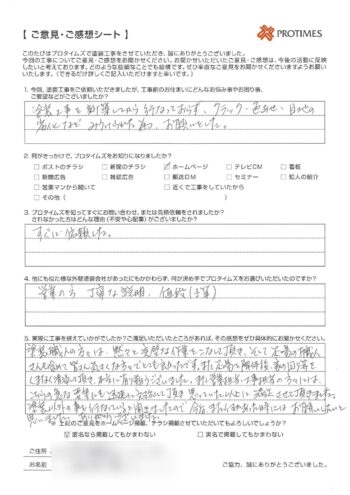 【 ご意見・ご感想シート 】 PROTIMES
このたびはプロタイムズで塗装工事をさせていただき、誠にありがとうございました。
今回の工事についてご意見・ご感想をお聞かせください。お聞かせいただいたご意見・ご感想は、今後の活動に反映
したいと考えております。どのような些細なことでも結構です。ぜひ率直なご意見をお聞かせくださいますようお願い
いたします。(できるだけ詳しくご記入いただけますと幸いです。)
1. 今回、塗装工事をご依頼いただきましたが、工事前のお住まいにどんなお悩み事やお困り事、
ご要望などがございましたか?
塗装工事を新築してから行なっておらず、クラック・色あせ・目地の
劣化など みうけられた為、お願いをした。
2. 何がきっかけで、プロタイムズをお知りになりましたか?
□ ポストのチラシ □ 新聞のチラシ ☑ ホームページ □ テレビCM □ 看板
□ 新聞広告 □ 雑誌広告 □ 郵送DM □ セミナー □ 知人の紹介
□ 営業マンから聞いて □ 近くで工事をしていたから
□ その他 ( )
3. プロタイムズを知ってすぐにお問い合わせ、または見積依頼をされましたか?
されなかった方はどんな理由(不安や心配事)がございましたか?
すぐに依頼した。
4. 他にも似た様な外壁塗装会社があったにもかかわらず、何が決め手でプロタイムズをお選びいただいたのですか?
営業の方 丁寧な説明、価格(予算)
5. 実際に工事を終えていかがでしたか?ご満足いただいたところがあれば、その感想をぜひ具体的にお聞かせください。
塗装職人の方々には、黙々と完璧な作業をこなして頂き、そして足場の職人
さんも含めて皆さん気さくな方でとても良かったです。また足場を解体後、家の回り等を
くまなく清掃して頂き、本当に有難うございました。また営業担当、工事担当の方々には、
こちらの急な営業にも迅速に対応して頂き思っていた以上に 満足させて頂きました。
塗装以外の事も行なっていると聞きましたので今後、またなにかあった時にはお願いしたいと
思いました。ありがとうございました。
※上記のご意見をホームページ掲載、チラシ掲載させていただいてもよろしいでしょうか?
☑ 匿名なら掲載してもかまわない □ 実名で掲載してもかまわない
ご住所
お名前 ご協力、誠にありがとうございました。